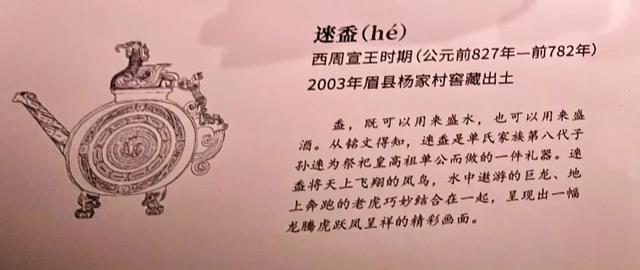 逨盉(hé)
西周宣王时期(公元前827年—前782年)
2003年眉县杨家村窖藏出土
盉，既可以用来盛水，也可以用来盛
酒。从铭文得知，逨盉是单氏家族第八代子
孙逨为祭祀皇高祖单公而做的一件礼器。逨
盉将天上飞翔的凤鸟，水中遨游的巨龙、地
上奔跑的老虎巧妙结合在一起，呈现出一幅
龙腾虎跃凤呈祥的精彩画面。